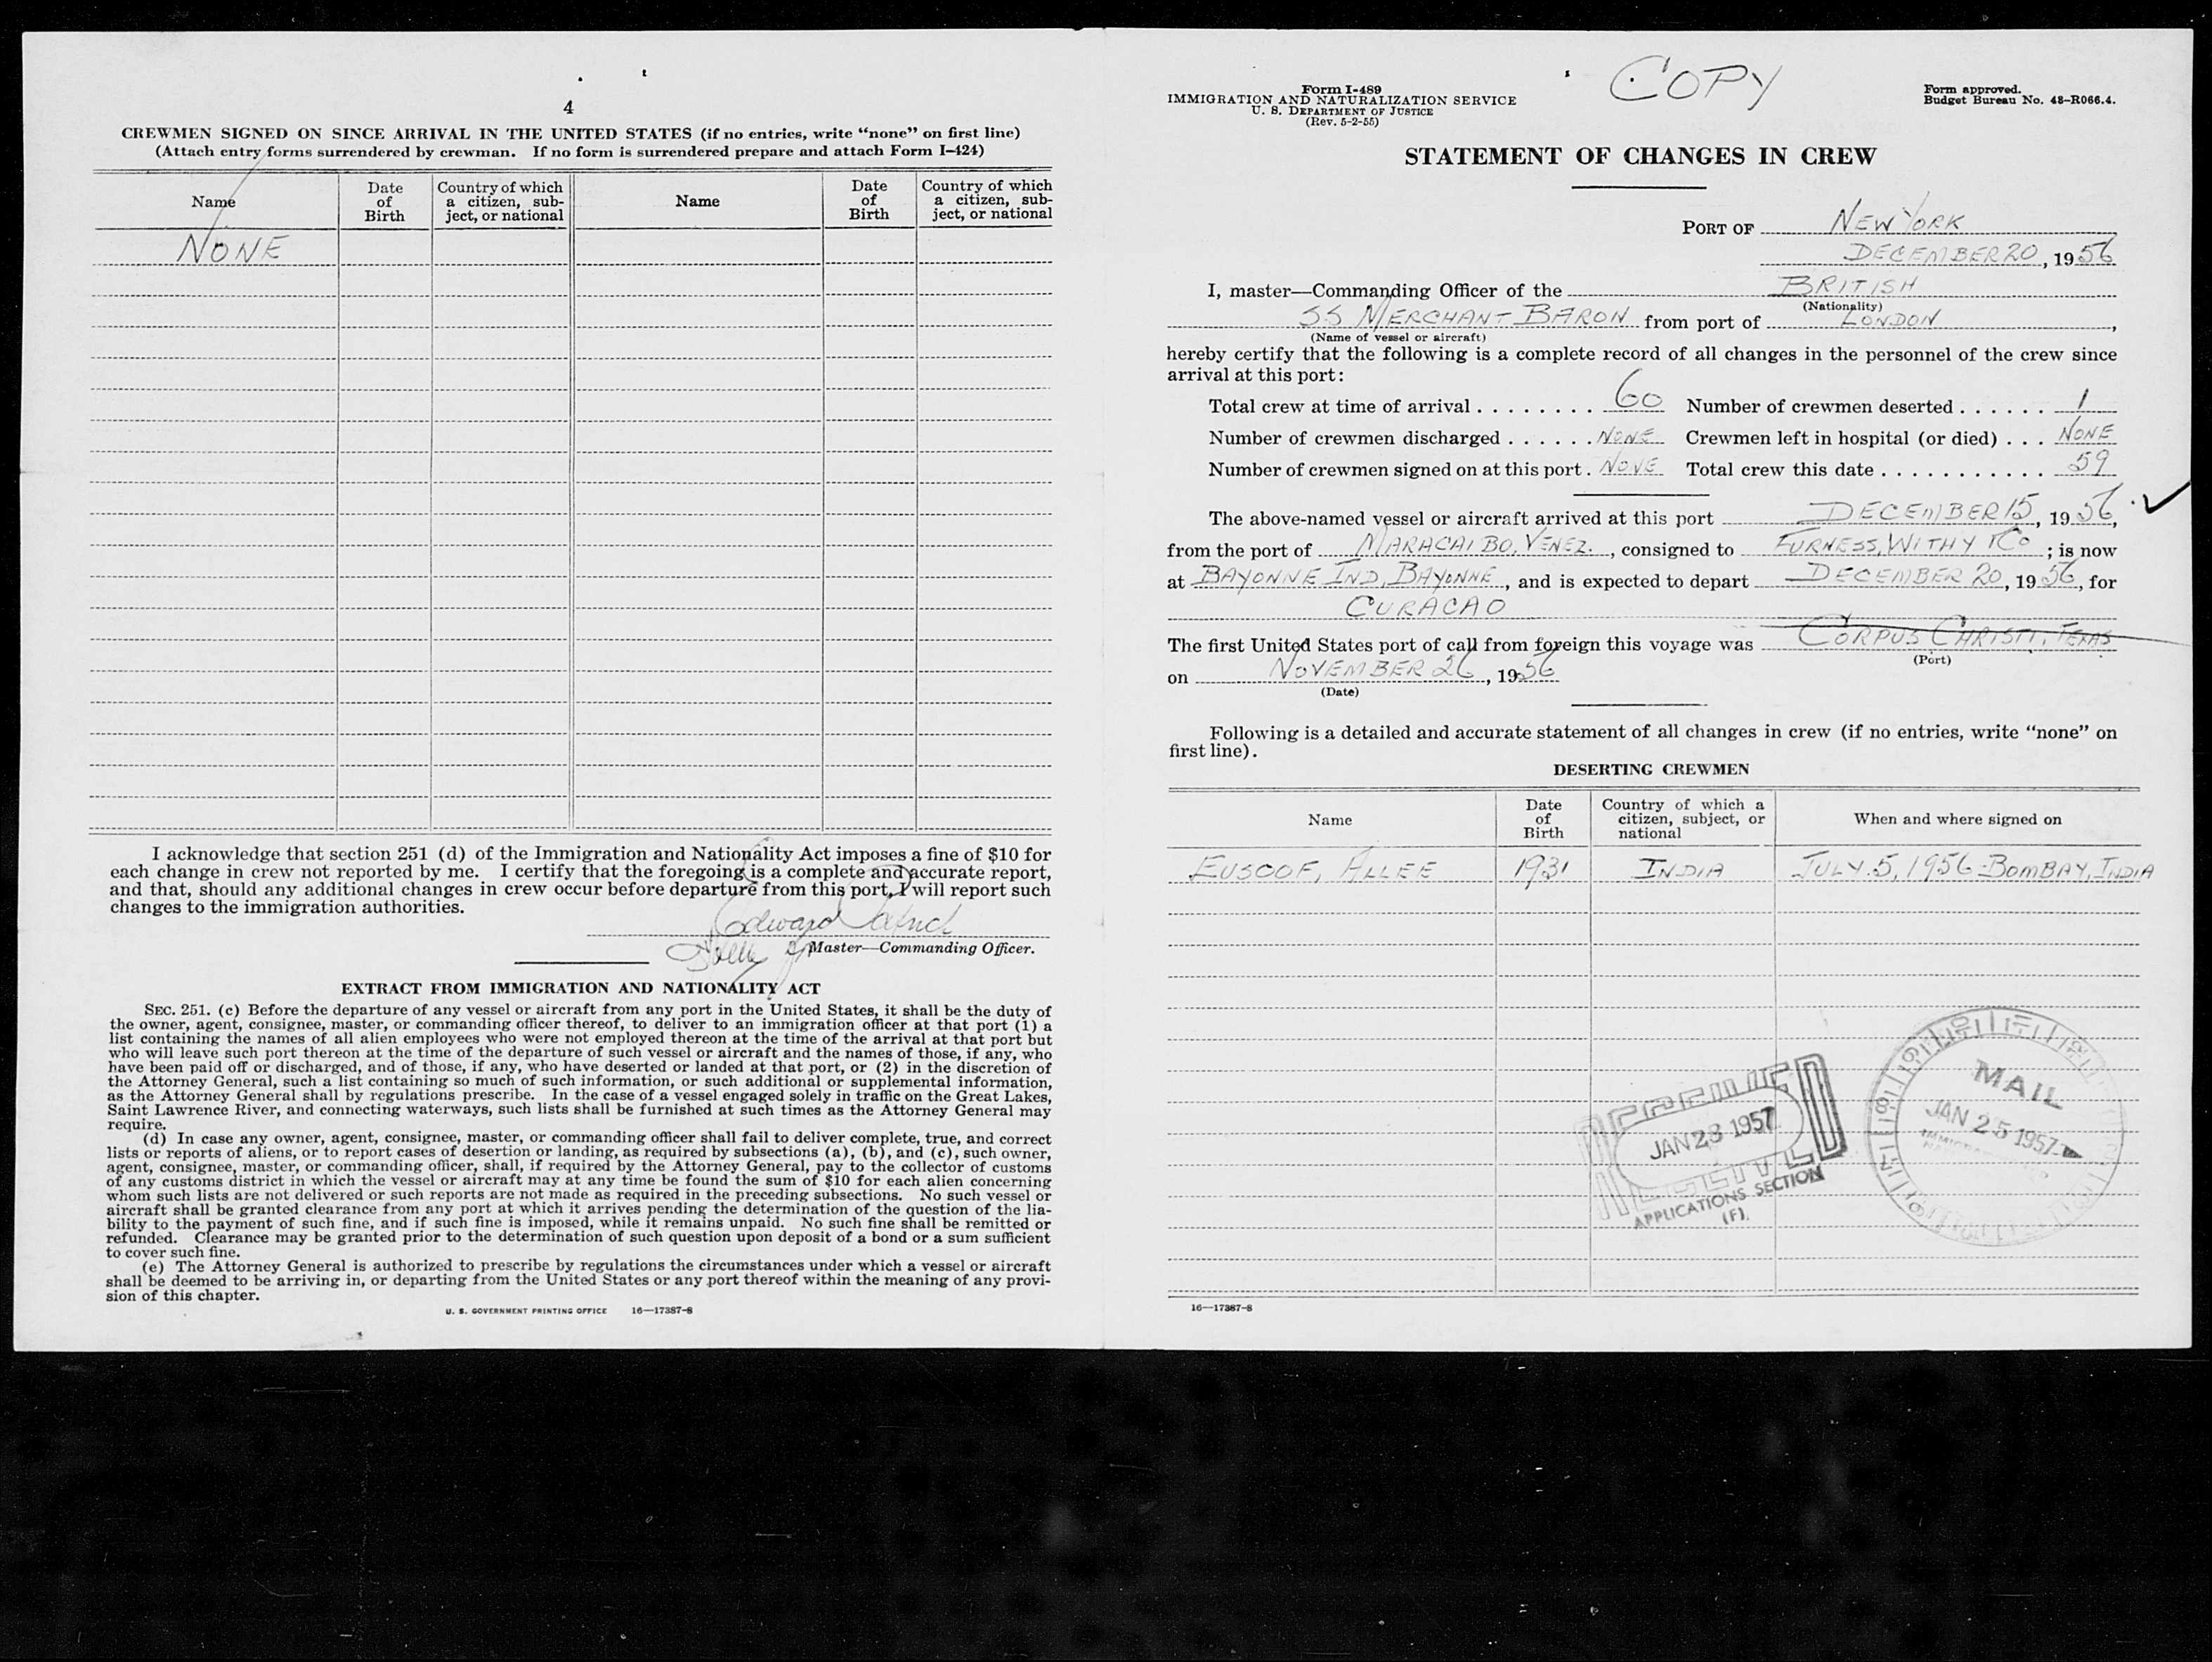 4
CREWMEN SIGNED ON SINCE ARRIVAL IN THE UNITED STATES (if no entries, write “none” on first line)
(Attach entry forms surrendered by crewman. If no form is surrendered prepare and attach Form I–424)
Name
Date of Birth
Country of which a citizen, sub-ject, or national
Name
Date of Birth
Country of which a citizen, sub-ject, or national
NONE
I acknowledge that section 251 (d) of the Immigration and Nationality Act imposes a fine of $10 for
each change in crew not reported by me. I certify that the foregoing is a complete and accurate report,
and that, should any additional changes in crew occur before departure from this port, I will report such
changes to the immigration authorities.
Edward
Master—Commanding Officer.
EXTRACT FROM IMMIGRATION AND NATIONALITY ACT
SEC. 251. (c) Before the departure of any vessel or aircraft from any port in the United States, it shall be the duty of
the owner, agent, consignee, master, or commanding officer thereof, to deliver to an immigration officer at that port (1) a
list containing the names of all alien employees who were not employed thereon at the time of the arrival at that port but
who will leave such port thereon at the time of the departure of such vessel or aircraft and the names of those, if any, who
have been paid off or discharged, and of those, if any, who have deserted or landed at that port, or (2) in the discretion of
the Attorney General, such a list containing so much of such information, or such additional or supplemental information,
as the Attorney General shall by regulations prescribe. In the case of a vessel engaged solely in traffic on the Great Lakes,
Saint Lawrence River, and connecting waterways, such lists shall be furnished at such times as the Attorney General may
require.
(d) In case any owner, agent, consignee, master, or commanding officer shall fail to deliver complete, true, and correct
lists or reports of aliens, or to report cases of desertion or landing, as required by subsections (a), (b), and (c), such owner,
agent, consignee, master, or commanding officer, shall, if required by the Attorney General, pay to the collector of customs
of any customs district in which the vessel or aircraft may at any time be found the sum of $10 for each alien concerning
whom such lists are not delivered or such reports are not made as required in the preceding subsections. No such vessel or
aircraft shall be granted clearance from any port at which it arrives pending the determination of the question of the lia-
bility to the payment of such fine, and if such fine is imposed, while it remains unpaid. No such fine shall be remitted or
refunded. Clearance may be granted prior to the determination of such question upon deposit of a bond or a sum sufficient
to cover such fine.
(e) The Attorney General is authorized to prescribe by regulations the circumstances under which a vessel or aircraft
shall be deemed to be arriving in, or departing from the United States or any port thereof within the meaning of any provi-
sion of this chapter.
U. S. GOVERNMENT PRINTING OFFICE 16—17387-8
COPY
Form I-489
IMMIGRATION AND NATURALIZATION SERVICE
U. S. DEPARTMENT OF JUSTICE
(Rev. 5-2-55)
Form approved.
Budget Bureau No. 43–R066.4.
STATEMENT OF CHANGES IN CREW
PORT OF NEW YORK
DECEMBER 20, 1956
I, master—Commanding Officer of the BRITISH
(Nationality)
SS MERCHANT BARON from port of LONDON,
(Name of vessel or aircraft)
hereby certify that the following is a complete record of all changes in the personnel of the crew since
arrival at this port:
Total crew at time of arrival . . . . . . . . 60 Number of crewmen deserted . . . . . . 1
Number of crewmen discharged . . . . . . NONE Crewmen left in hospital (or died) . . . NONE
Number of crewmen signed on at this port . NONE Total crew this date . . . . . . . . . . . 59
The above-named vessel or aircraft arrived at this port DECEMBER 15, 1956,
from the port of MARACAIBO, VENEZ., consigned to FURNESS, WITHY & CO; is now
at BAYONNE IND, BAYONNE, and is expected to depart DECEMBER 20, 1956, for
CURACAO
The first United States port of call from foreign this voyage was CORPUS CHRISTI, TEXAS
(Port)
on NOVEMBER 26, 1956
(Date)
Following is a detailed and accurate statement of all changes in crew (if no entries, write “none” on
first line).
DESERTING CREWMEN
Name
Date of Birth
Country of which a citizen, subject, or national
When and where signed on
EUSOOF, ALLEE 1931 INDIA JULY 5, 1956-BOMBAY, INDIA
JAN 28 1957
APPLICATIONS SECTION
(F).
MAIL
JAN 25 1957
16—17387-8